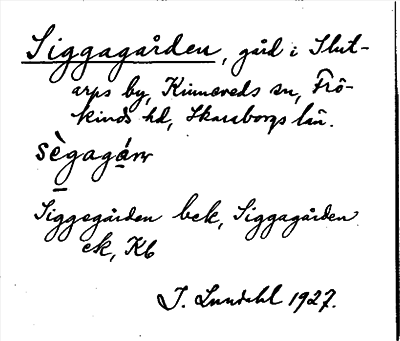 Siggagården, gård i Slut-
arps by, Kinneveds sn, Frö-
kinds hd, Skaraborgs län.
sègagárn
Siggegården bek, Siggagården
ek, Kb
I. Lundahl 1927.